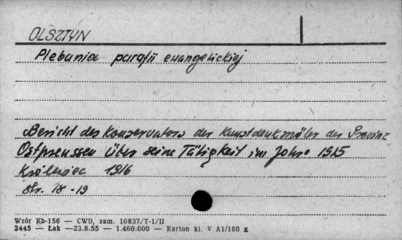 OLSZTYN
Plebania parafii ewangelickiej
Bericht des Konservators der Kunstdenkmäler der Provinz
Ostpreussen über seine Tätigkeit im Jahre 1915
Królewiec 1916
Str. 18-19
Wzór Kb-156 — CWD, zam. 10837/T-1/II
2445 — Łak —23.8.55 — 1.460.000 — Karton kl. V A1/180 g